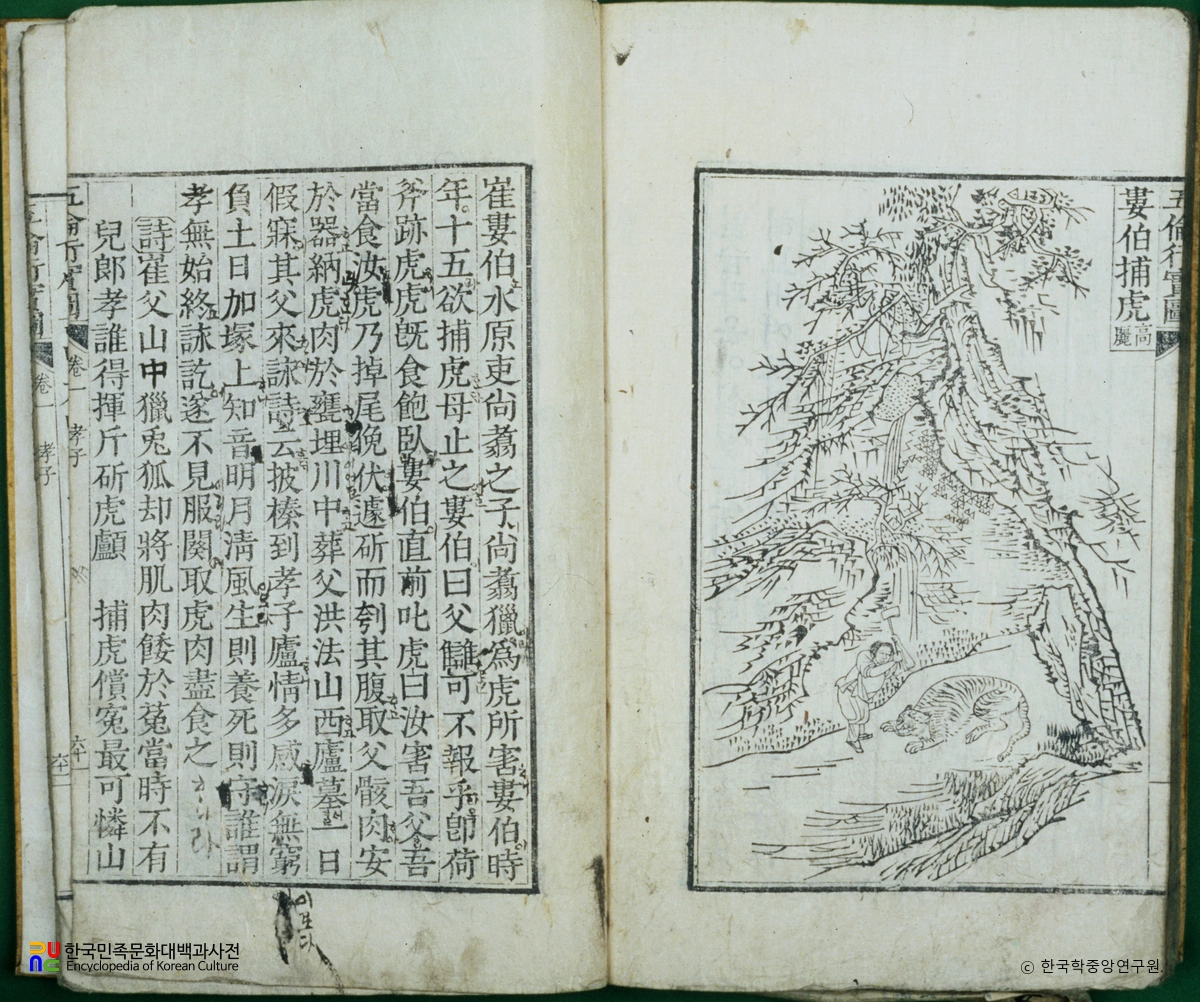 五倫行實圖
婁伯捕虎 高麗
崔婁伯水原吏尙翥之子尙翥獵爲虎所害婁伯時
年十五欲捕虎母止之婁伯曰父讎可不報乎卽荷
斧跡虎虎旣食飽臥婁伯直前叱虎曰汝害吾父吾
當食汝虎乃掉尾俛伏遽斫而刳其腹取父骸肉安
於器納虎肉於甕埋川中葬父洪法山西廬墓一日
假寐其父來詠詩云披榛到孝子廬情多感淚無窮
負土日加塚上知音明月淸風生則養死則守誰謂
孝無始終詠訖遂不見服闋取虎肉盡食之
詩 崔父山中獵兎狐却將肌肉餧於菟當時不有
兒郞孝誰得揮斤斫虎顱 捕虎償寃最可憐山
五倫行實圖 卷一 孝子 六十一
五倫行實圖 卷一 孝子
한국민족문화대백과사전
Encyclopedia of Korean Culture
© 한국학중앙연구원